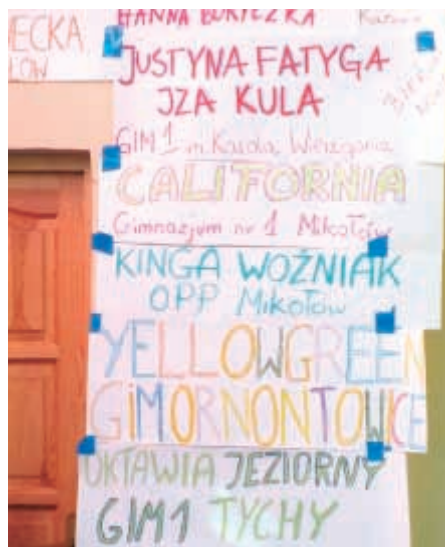 HANNA
ECKA
JUSTYNA FATYGA
JZA KULA
GIM 1 im Karola Wierzgonia
CALIFORNIA
Gimnazjum nr 1 Mikołów
KINGA WOŹNIAK
OPP Mikołów
YELLOWGREEN
GIMORNONTOWICE
OKTAWIA JEZIORNY
GIM1 TYCHY